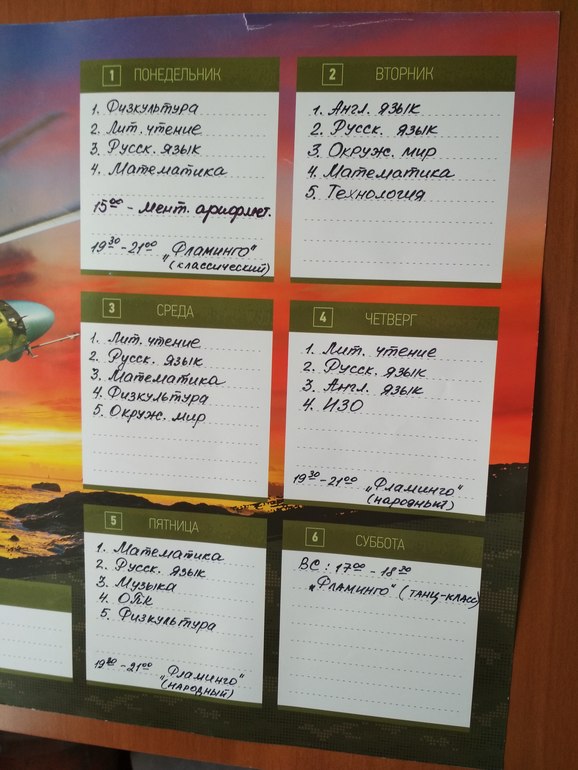 1 ПОНЕДЕЛЬНИК
1. Физкультура
2. Лит. чтение
3. Русск. язык
4. Математика
15 00 - мент. арифмет.
19 30 - 21 00 „Фламинго"
(классический)
2 ВТОРНИК
1. Англ. язык
2. Русск. язык
3. Окруж. мир
4. Математика
5. Технология
3 СРЕДА
1. Лит. чтение
2. Русск. язык
3. Математика
4. Физкультура
5. Окруж. мир
4 ЧЕТВЕРГ
1. Лит. чтение
2. Русск. язык
3. Англ. язык
4. ИЗО
19 30 - 21 00 „Фламинго"
(народный)
5 ПЯТНИЦА
1. Математика
2. Русск. язык
3. Музыка
4. ОПК
5. Физкультура
- 21 00 „Фламинго"
(народный)
6 СУББОТА
ВС: 17 00 - 18 30
„Фламинго" (танц-класс)